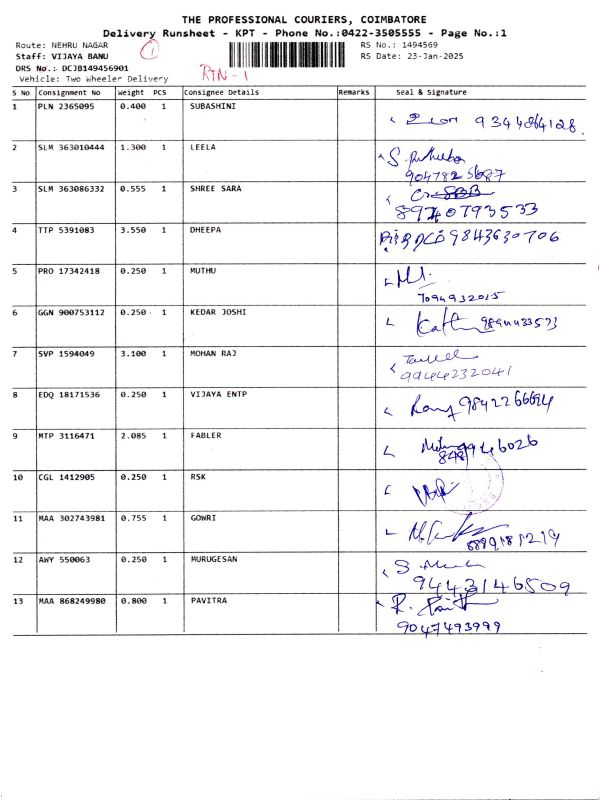 THE PROFESSIONAL COURIERS, COIMBATORE
Delivery Runsheet - KPT - Phone No.:0422-3505555 - Page No.:1
Route: NEHRU NAGAR 1 RS No.: 1494569
Staff: VIJAYA BANU RS Date: 23-Jan-2025
DRS No.: DCJB149456901 RTN-1
Vehicle: Two Wheeler Delivery
S No Consignment No Weight PCS Consignee Details Remarks Seal & Signature
1 PLN 2365095 0.400 1 SUBASHINI
2 SLM 363010444 1.300 1 LEELA
3 SLM 363086332 0.555 1 SHREE SARA
8940793533
4 TTP 5391083 3.550 1 DHEEPA 9843630706
5 PRO 17342418 0.250 1 MUTHU
7094932015
6 GGN 900753112 0.250 1 KEDAR JOSHI
7 SVP 1594049 3.100 1 MOHAN RAJ
99444232041
8 EDQ 18171536 0.250 1 VIJAYA ENTP
9 MTP 3116471 2.085 1 FABLER
10 CGL 1412905 0.250 1 RSK
11 MAA 302743981 0.755 1 GOWRI
12 AWY 550063 0.250 1 MURUGESAN
9443146509
13 MAA 868249980 0.800 1 PAVITRA
9047493999